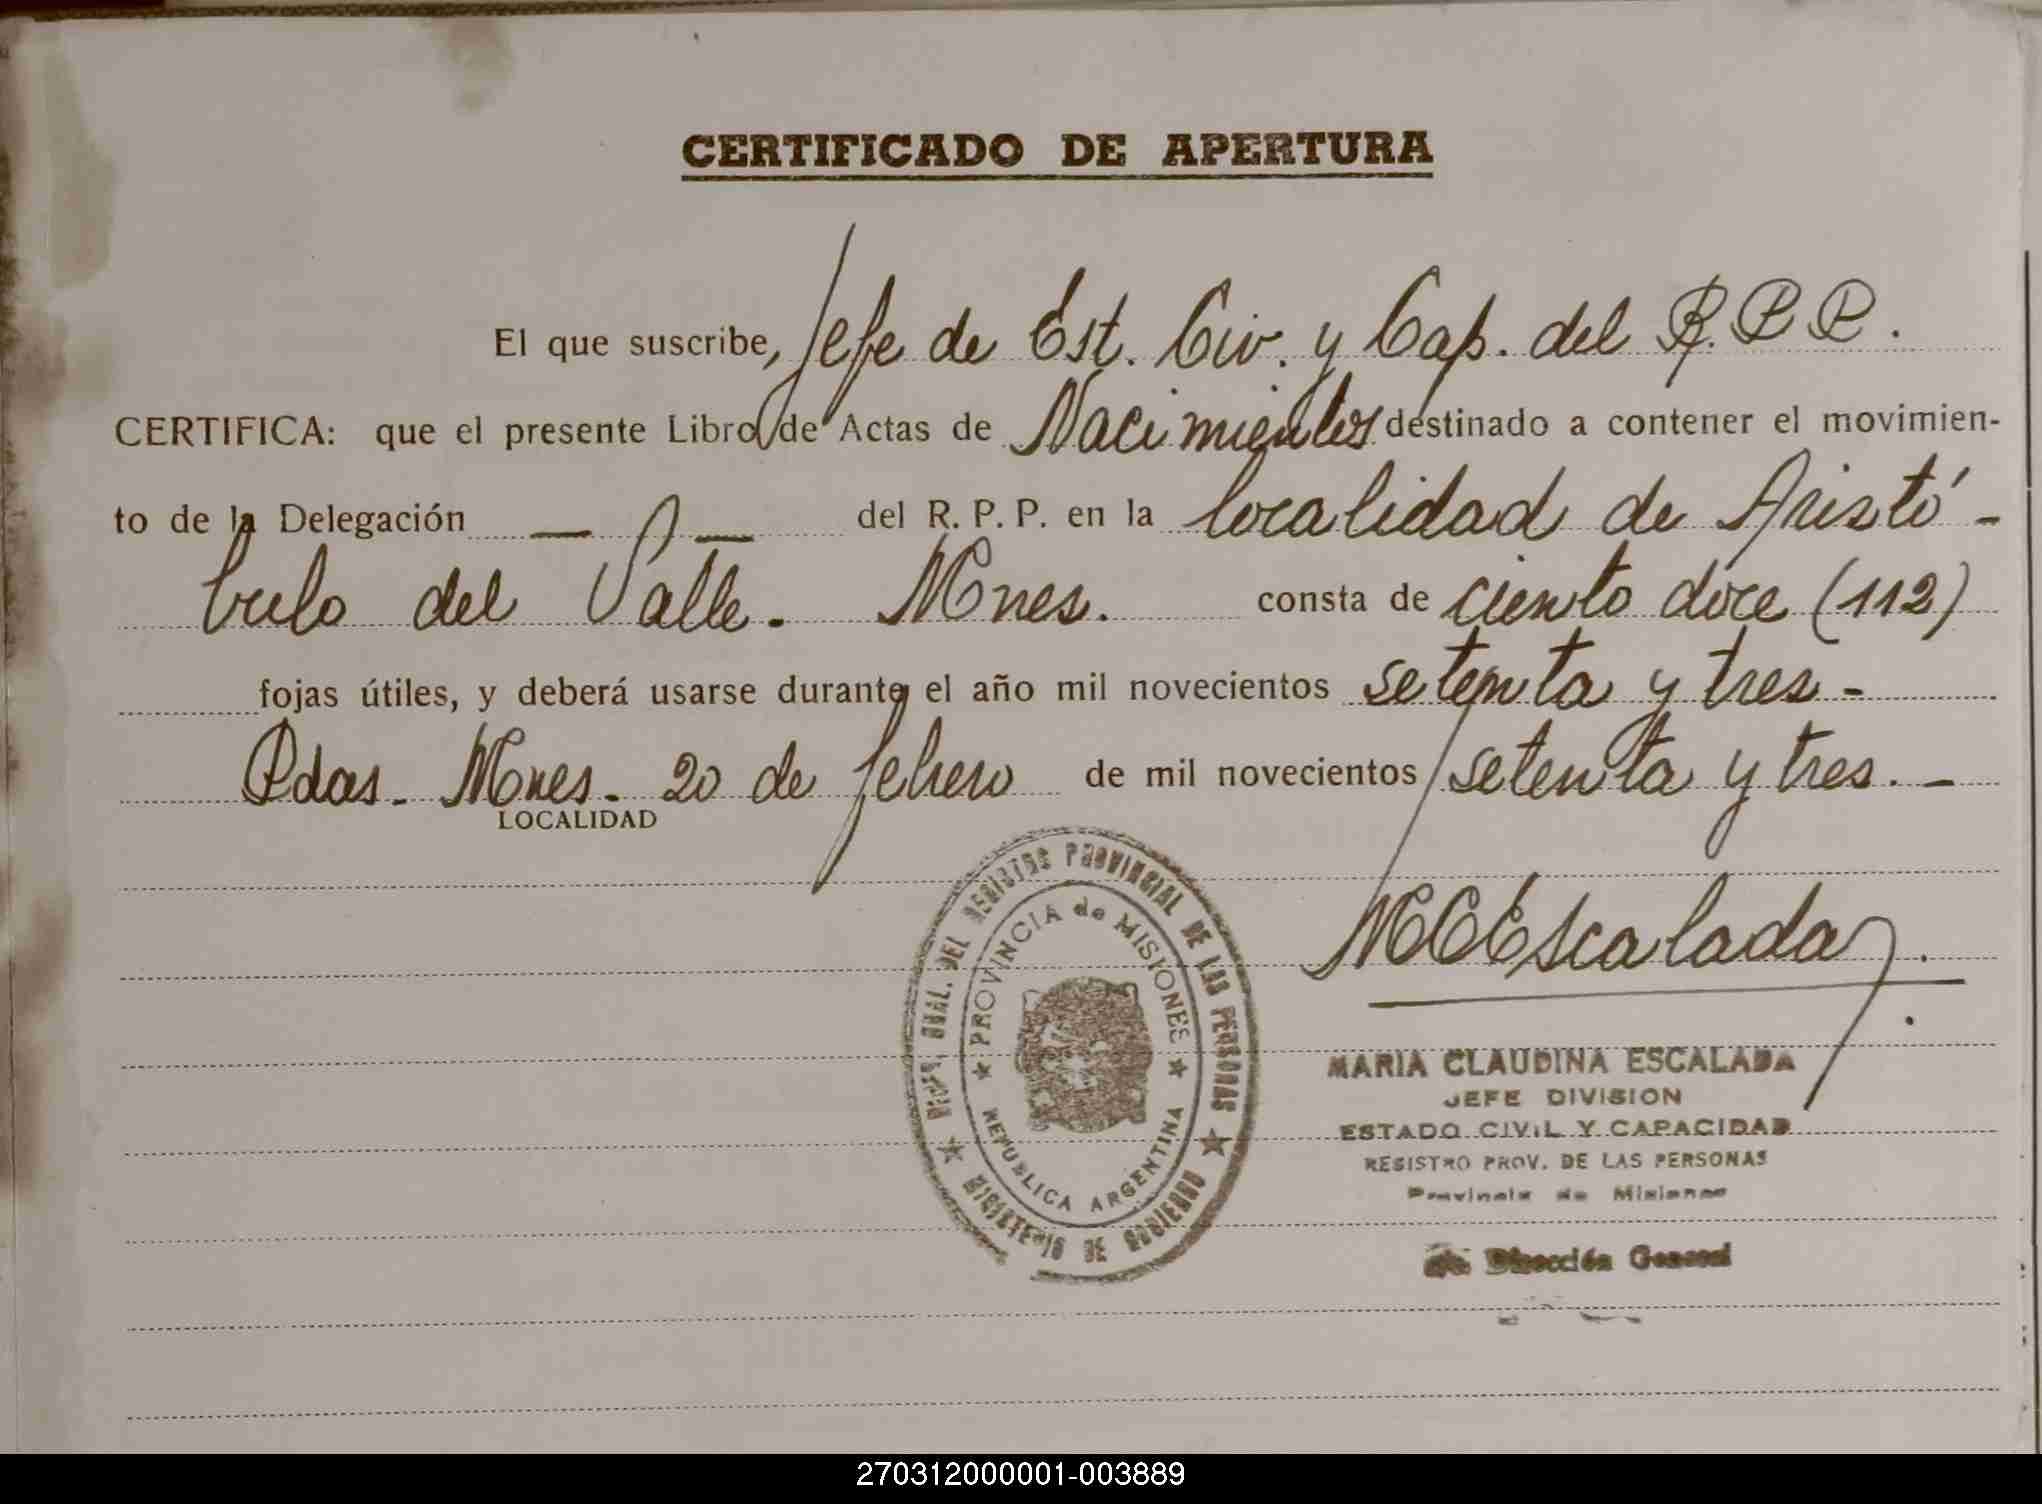 CERTIFICADO DE APERTURA
El que suscribe, Jefe de Est. Civ. y Cap. del R.P.P.
CERTIFICA: que el presente Libro de Actas de Nacimientos destinado a contener el movimien-
to de la Delegación — — del R. P. P. en la localidad de Aristó-
bulo del Valle. Mnes. consta de ciento doce (112)
fojas útiles, y deberá usarse durante el año mil novecientos setenta y tres -
Pdas. Mnes. 20 de febrero de mil novecientos setenta y tres. -
LOCALIDAD
DIREC. GRAL. DEL REGISTRO PROVINCIAL DE LAS PERSONAS
PROVINCIA de MISIONES
REPUBLICA ARGENTINA
MINISTERIO DE GOBIERNO
MCEscalada
MARIA CLAUDINA ESCALADA
JEFE DIVISION
ESTADO CIVIL Y CAPACIDAD
REGISTRO PROV. DE LAS PERSONAS
Provincia de Misiones
Dirección General
270312000001-003889